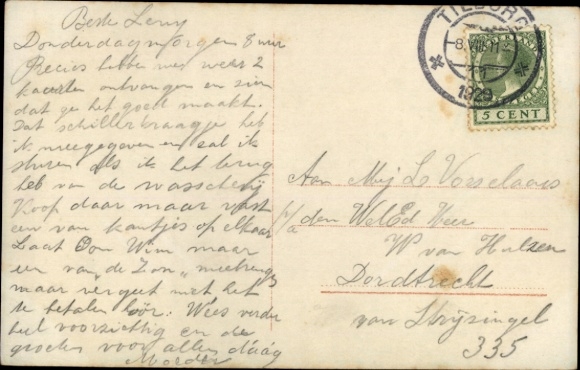 Beste Leny
Donderdagmorgen 8 uur
Precies hebben we weer 2
kaarten ontvangen en zien
dat je het goed maakt.
Dat schillerkraagje heb
ik meegegeven en zal ik
sturen als ik het terug
heb van de wasscherij
Koop daar maar vast
een van kantjes op elkaar
Laat Oom Wim maar
een van "de Zon" meebrengen
maar vergeet niet het
te betalen hoor. Wees verder
heel voorzichtig en de
groeten voor allen dáág
Moeder
TILBURG
8 VIII
1929
5 CENT
Aan Mej L Vorselaars
p/a den WelEd Heer
W van Hulzen
Dordtrecht
van Strijsingel
335